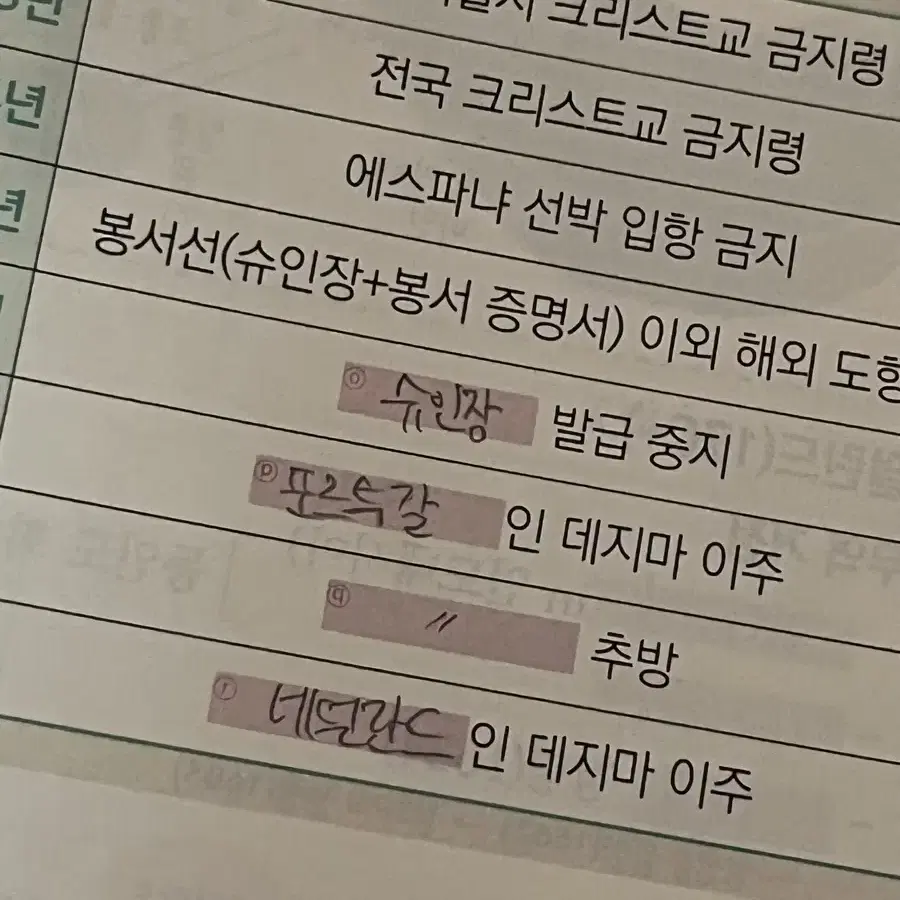 크리스트교 금지령
년 전국 크리스트교 금지령
년 에스파냐 선박 입항 금지
봉서선(슈인장+봉서 증명서) 이외 해외 도항
ⓞ 슈인장 발급 중지
ⓟ 포르투갈 인 데지마 이주
ⓠ 〃 추방
ⓡ 네덜란드 인 데지마 이주